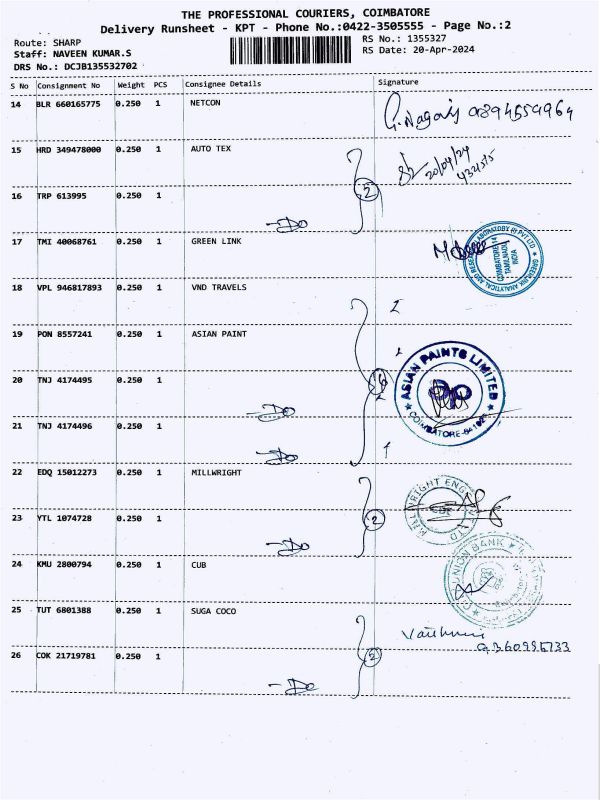 THE PROFESSIONAL COURIERS, COIMBATORE
Delivery Runsheet - KPT - Phone No.:0422-3505555 - Page No.:2
Route: SHARP
RS No.: 1355327
Staff: NAVEEN KUMAR.S
RS Date: 20-Apr-2024
DRS No.: DCJB135532702
S No Consignment No Weight PCS Consignee Details Signature
14 BLR 660165775 0.250 1 NETCON
15 HRD 349478000 0.250 1 AUTO TEX
20/04/24
2
16 TRP 613995 0.250 1
-Do
17 TMI 40068761 0.250 1 GREEN LINK
COIMBATORE-14
TAMILNADU
INDIA
18 VPL 946817893 0.250 1 VND TRAVELS
19 PON 8557241 0.250 1 ASIAN PAINT
ASIAN PAINTS LIMITED
20 TNJ 4174495 0.250 1
-Do
21 TNJ 4174496 0.250 1
-Do
22 EDQ 15012273 0.250 1 MILLWRIGHT
23 YTL 1074728 0.250 1
2
-Do
24 KMU 2800794 0.250 1 CUB
25 TUT 6801388 0.250 1 SUGA COCO
26 COK 21719781 0.250 1
2
-Do